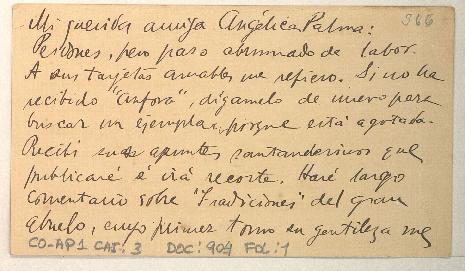 566
Mi querida amiga Angélica Palma:
Perdones, pero paso abrumado de labor.
A sus tarjetas amables me refiero. Si no ha
recibido "Anfora", dígamelo de nuevo para
buscar un ejemplar, porque está agotada.
Recibí sus apuntes santanderinos que
publicaré é irá recorte. Haré largo
comentario sobre "Tradiciones" del gran
abuelo, cuyo primer tomo su gentileza me
CO-AP1 CAJ: 3 DOC: 904 FOL: 1